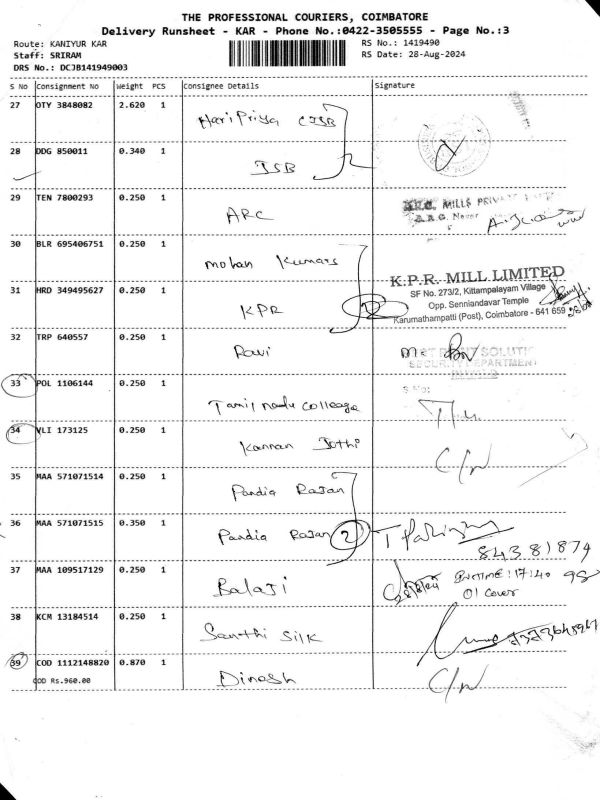 THE PROFESSIONAL COURIERS, COIMBATORE
Delivery Runsheet - KAR - Phone No.:0422-3505555 - Page No.:3
Route: KANIYUR KAR
RS No.: 1419490
Staff: SRIRAM
RS Date: 28-Aug-2024
DRS No.: DCJB141949003
S No Consignment No Weight PCS Consignee Details Signature
27 OTY 3848082 2.620 1 Hari Priya CJSB
28 DDG 850011 0.340 1 JSB
29 TEN 7800293 0.250 1 ARC
A.R.C. MILLS PRIVATE
30 BLR 695406751 0.250 1 Mohan Kumars
K.P.R. MILL LIMITED
SF No. 273/2, Kittampalayam Village
Opp. Senniandavar Temple
Karumathampatti (Post), Coimbatore - 641 659
31 HRD 349495627 0.250 1 KPR 2
32 TRP 640557 0.250 1 Ravi
SECURITY DEPARTMENT
33 POL 1106144 0.250 1 Tamil nadu colleage
S No:
34 VLI 173125 0.250 1 Kannan Jothi C/N
35 MAA 571071514 0.250 1 Pandia Rajan
36 MAA 571071515 0.350 1 Pandia Rajan 2
84381874
98
37 MAA 109517129 0.250 1 Balaji
17:40
01 cover
38 KCM 13184514 0.250 1 Santhi Silk
39 COD 1112148820 0.870 1 Dinesh C/N
COD Rs.960.00